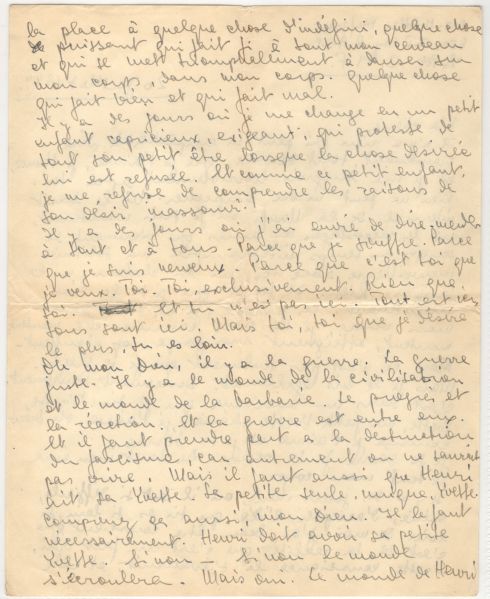 la place à quelque chose d'indéfini, quelque chose
de puissant qui fait fi à tout mon cerveau
et qui se met triomphellement à danser sur
mon corps, dans mon corps. Quelque chose
qui fait bien et qui fait mal.
Il y a des jours où je me change en un petit
enfant capricieux, exigeant, qui proteste de
tout son petit être lorsque la chose désirée
lui est refusée. Et comme ce petit enfant,
je me refuse de comprendre les raisons de
son désir
Il y a des jours où j'ai envie de dire merde
à tout et à tous. Parce que je souffre. Parce
que je suis nerveux. Parce que c'est toi que
je veux. Toi. Toi, exclusivement. Rien que
toi. Et tu n'es pas ici. Tout est ici,
tous sont ici. Mais toi, toi que je désire
le plus, tu es loin.
Oh mon Dieu, il y a la guerre. La guerre
juste. Il y a le monde de la civilisation
et le monde de la barbarie. Le progrès et
la réaction. Et la guerre est entre eux.
Et il faut prendre part a la destruction
du fascisme, car autrement on ne saurait
pas vivre. Mais il faut aussi que Henri
ait sa Yvette. Sa petite, seule, unique, Yvette
comprenez ça aussi, mon Dieu. Il le faut
nécessairement. Henri doit avoir sa petite
Yvette. Sinon — Sinon le monde
s'écroulera. Mais oui. Le monde de Henri